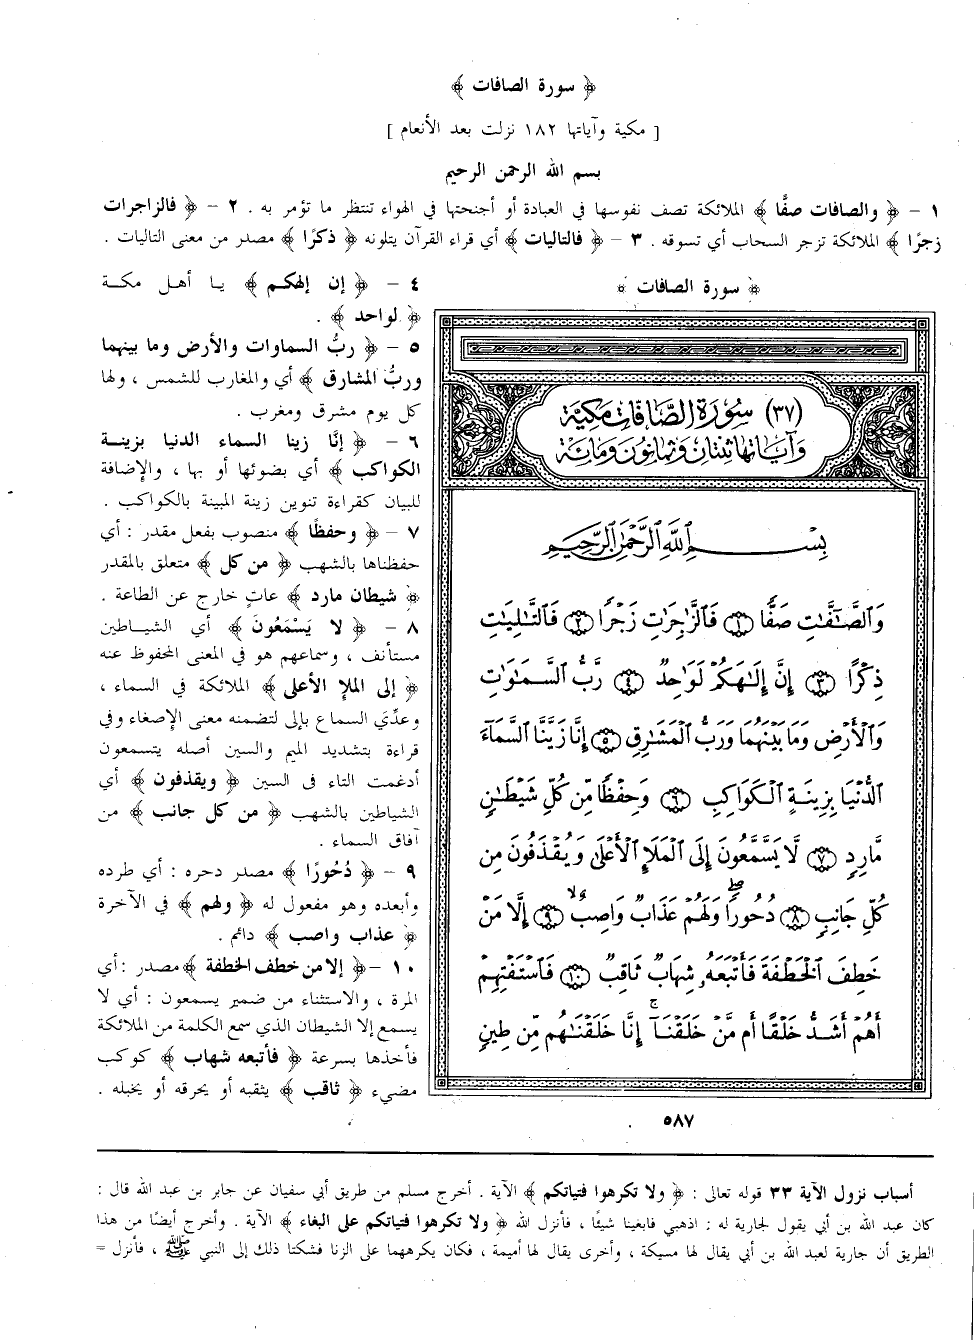 ﴿ سورة الصافات ﴾
[ مكية وآياتها ١٨٢ نزلت بعد الأنعام ]
بسم الله الرحمن الرحيم
١ – ﴿ والصافات صفًّا ﴾ الملائكة تصف نفوسها في العبادة أو أجنحتها في الهواء تنتظر ما تؤمر به . ٢ – ﴿ فالزاجرات
زجرًا ﴾ الملائكة تزجر السحاب أي تسوقه . ٣ – ﴿ فالتاليات ﴾ أي قراء القرآن يتلونه ﴿ ذكرًا ﴾ مصدر من معنى التاليات .
﴿ سورة الصافات ﴾
(٣٧) سُورَة الصَّافَات مَكيَّة
وَآيَاتهَا ثِنتَان وَثمَانونَ وَمائة
بِسْمِ ٱللَّهِ ٱلرَّحْمَٰنِ ٱلرَّحِيمِ
وَٱلصَّٰٓفَّٰتِ صَفًّا ۝١ فَٱلزَّٰجِرَٰتِ زَجْرًا ۝٢ فَٱلتَّٰلِيَٰتِ
ذِكْرًا ۝٣ إِنَّ إِلَٰهَكُمْ لَوَٰحِدٌ ۝٤ رَّبُّ ٱلسَّمَٰوَٰتِ
وَٱلْأَرْضِ وَمَا بَيْنَهُمَا وَرَبُّ ٱلْمَشَٰرِقِ ۝٥ إِنَّا زَيَّنَّا ٱلسَّمَآءَ
ٱلدُّنْيَا بِزِينَةٍ ٱلْكَوَاكِبِ ۝٦ وَحِفْظًا مِّن كُلِّ شَيْطَٰنٍ
مَّارِدٍ ۝٧ لَّا يَسَّمَّعُونَ إِلَى ٱلْمَلَإِ ٱلْأَعْلَىٰ وَيُقْذَفُونَ مِن
كُلِّ جَانِبٍ ۝٨ دُحُورًا ۖ وَلَهُمْ عَذَابٌ وَاصِبٌ ۝٩ إِلَّا مَنْ
خَطِفَ ٱلْخَطْفَةَ فَأَتْبَعَهُۥ شِهَابٌ ثَاقِبٌ ۝١٠ فَٱسْتَفْتِهِمْ
أَهُمْ أَشَدُّ خَلْقًا أَم مَّنْ خَلَقْنَآ ۚ إِنَّا خَلَقْنَٰهُم مِّن طِينٍ
٥٨٧
٤ – ﴿ إن إلهكم ﴾ يا أهل مكة
﴿ لواحد ﴾ .
٥ – ﴿ ربُّ السماوات والأرض وما بينهما
وربُّ المشارق ﴾ أي والمغارب للشمس ، ولها
كل يوم مشرق ومغرب .
٦ – ﴿ إنَّا زينا السماء الدنيا بزينة
الكواكب ﴾ أي بضوئها أو بها ، والإضافة
للبيان كقراءة تنوين زينة المبينة بالكواكب .
٧ – ﴿ وحفظًا ﴾ منصوب بفعل مقدر : أي
حفظناها بالشهب ﴿ من كل ﴾ متعلق بالمقدر
﴿ شيطان مارد ﴾ عاتٍ خارج عن الطاعة .
٨ – ﴿ لا يَسْمَعُونَ ﴾ أي الشياطين
مستأنف ، وسماعهم هو في المعنى المحفوظ عنه
﴿ إلى الملإ الأعلى ﴾ الملائكة في السماء ،
وعدِّي السماع بإلى لتضمنه معنى الإصغاء وفي
قراءة بتشديد الميم والسين أصله يتسمعون
أدغمت التاء فى السين ﴿ ويقذفون ﴾ أي
الشياطين بالشهب ﴿ من كل جانب ﴾ من
آفاق السماء .
٩ – ﴿ دُحُورًا ﴾ مصدر دحره : أي طرده
وأبعده وهو مفعول له ﴿ ولهم ﴾ في الآخرة
﴿ عذاب واصب ﴾ دائم .
١٠ – ﴿ إلا من خطف الخطفة ﴾ مصدر : أي
المرة ، والاستثناء من ضمير يسمعون : أي لا
يسمع إلا الشيطان الذي سمع الكلمة من الملائكة
فأخذها بسرعة ﴿ فأتبعه شهاب ﴾ كوكب
مضيء ﴿ ثاقب ﴾ يثقبه أو يحرقه أو يخبله .
أسباب نزول الآية ٣٣ قوله تعالى : ﴿ ولا تكرهوا فتياتكم ﴾ الآية . أخرج مسلم من طريق أبي سفيان عن جابر بن عبد الله قال :
كان عبد الله بن أبي يقول لجارية له : اذهبي فابغينا شيئًا ، فأنزل الله ﴿ ولا تكرهوا فتياتكم على البغاء ﴾ الآية . وأخرج أيضًا من هذا
الطريق أن جارية لعبد الله بن أبي يقال لها مسيكة ، وأخرى يقال لها أميمة ، فكان يكرههما على الزنا فشكتا ذلك إلى النبي ﷺ ، فأنزل =